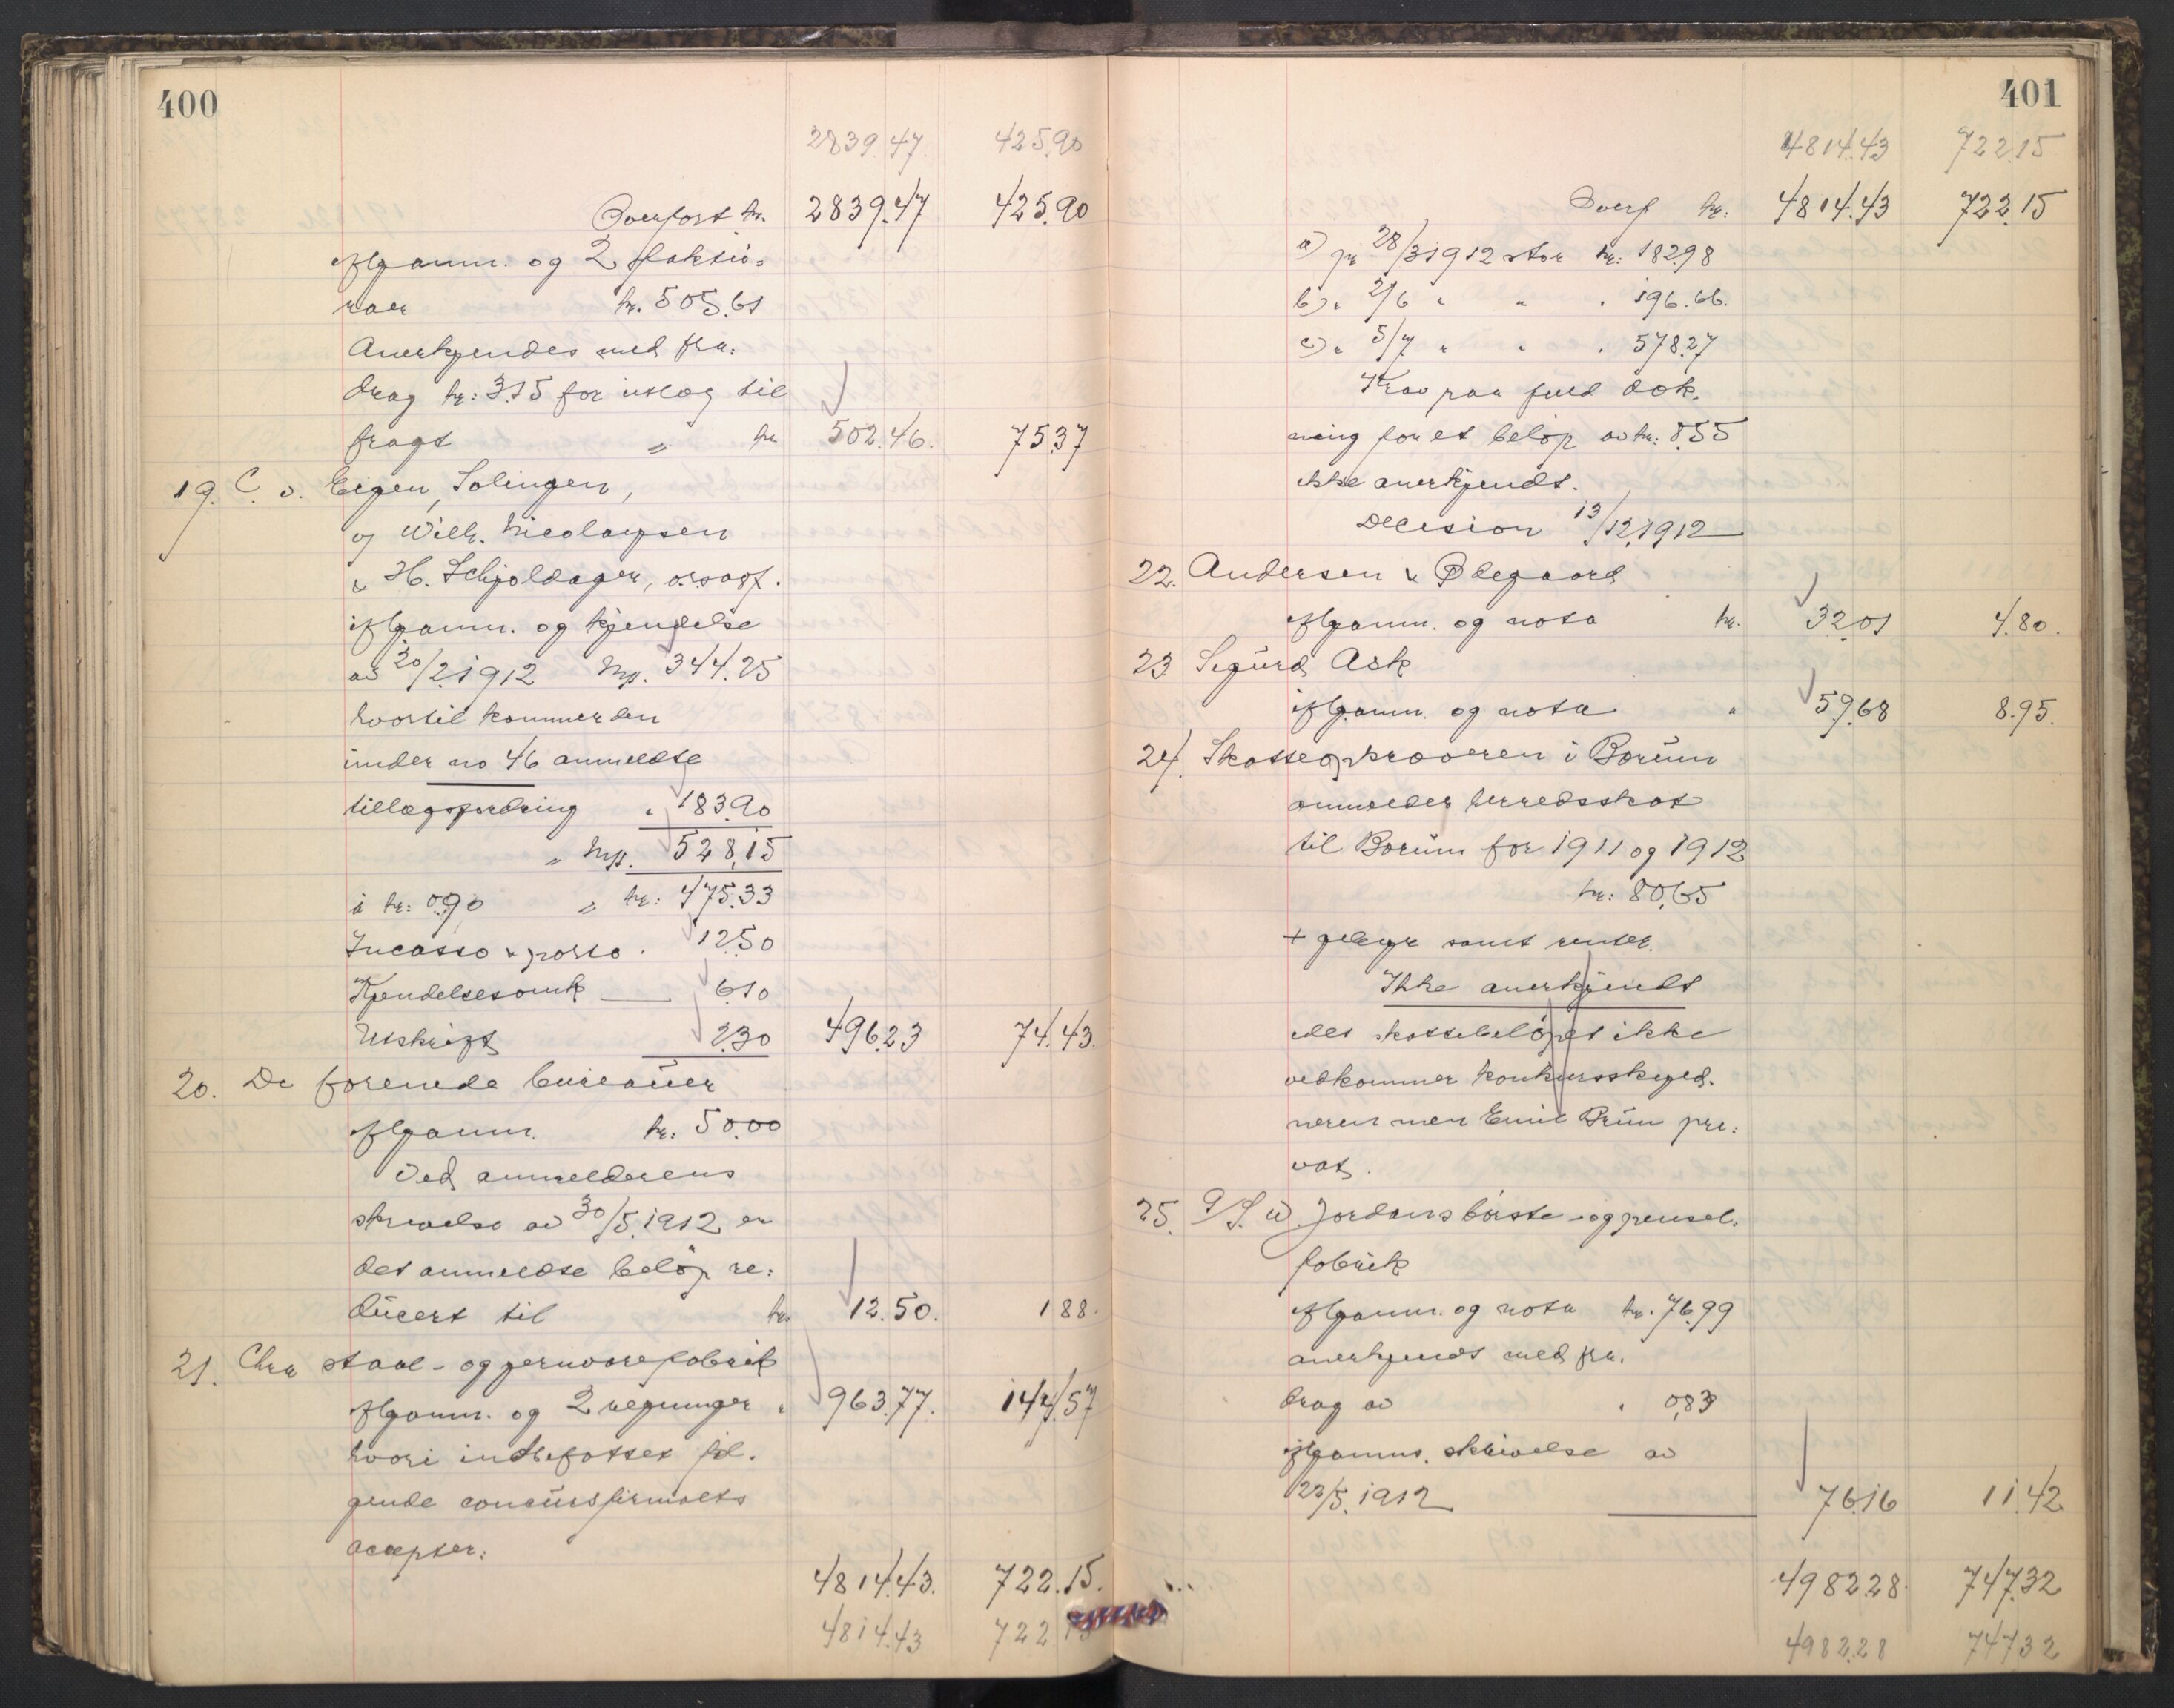 400
2839.47 425.90
Overført kr. 2839.47 425.90
iflg anm. og 2 faktu=
raer kr. 505.61
Anerkjendes med fra:
drag kr: 3.15 for utlæg til
fragt " kr 502.46. 75.37
19. C. v. Eigen, Solingen,
v/ Wilh. Nicolaysen
& H. Schjoldager, o.r.sagf.
iflg anm. og kjendelse
av 20/2.1912 Mk. 344.25
hvortil kommer den
under no 46 anmeldte
tillægsfordring " 183.90
" Mk. 528,15
à kr: 0.90 " kr: 475.33
Incasso & porto . 12.50
Kjendelsesomk 6.10
Utskrift 2.30 496.23 74.43.
20. De forenede bureauer
iflg anm. kr: 50.00
Ved anmelderens
skrivelse av 30/5.1912 er
det anmeldte beløp re:
ducert til kr. 12.50. 1 88.
21. Chra staal- og jernvarefabrik
iflg anm. og 2 regninger " 963.77. 144.57
hvori indbefattet føl.
gende concursfirmaets
accepter:
4814.43. 722.15.
4814.43 722.15
401
4814.43 722.15
Overf kr: 4814.43 722.15
a) pr 28/3 1912 stor kr: 182.98
b) " 2/6 " " " 196.66.
c) " 5/7 " " " 578.27
Krav paa fuld dæk.
ning for et beløp av kr: 8.55
ikke anerkjendt.
Decision 13/12.1912
22. Andersen & Ødegaard
iflg anm. og nota kr. 32.01 4.80.
23 Sigurd Ask
iflg anm. og nota " 59.68 8.95.
24. Skatteopkræveren i Bærum
anmelder herredsskat
til Bærum for 1911 og 1912
kr: 80.65
+ gebyr samt renter.
Ikke anerkjendt
idet skattebeløpet ikke
vedkommer konkursskyld.
neren men Emil Bruun pri:
vat.
25. I/S W. Jordans børste- og pensel.
fabrik
iflg anm. og nota kr. 76.99
anerkjendt med fra.
drag av " 0.83
iflg anm. skrivelse av
22/5.1912 76.16 11.42
4982.28 747.32
4982.28 747.32